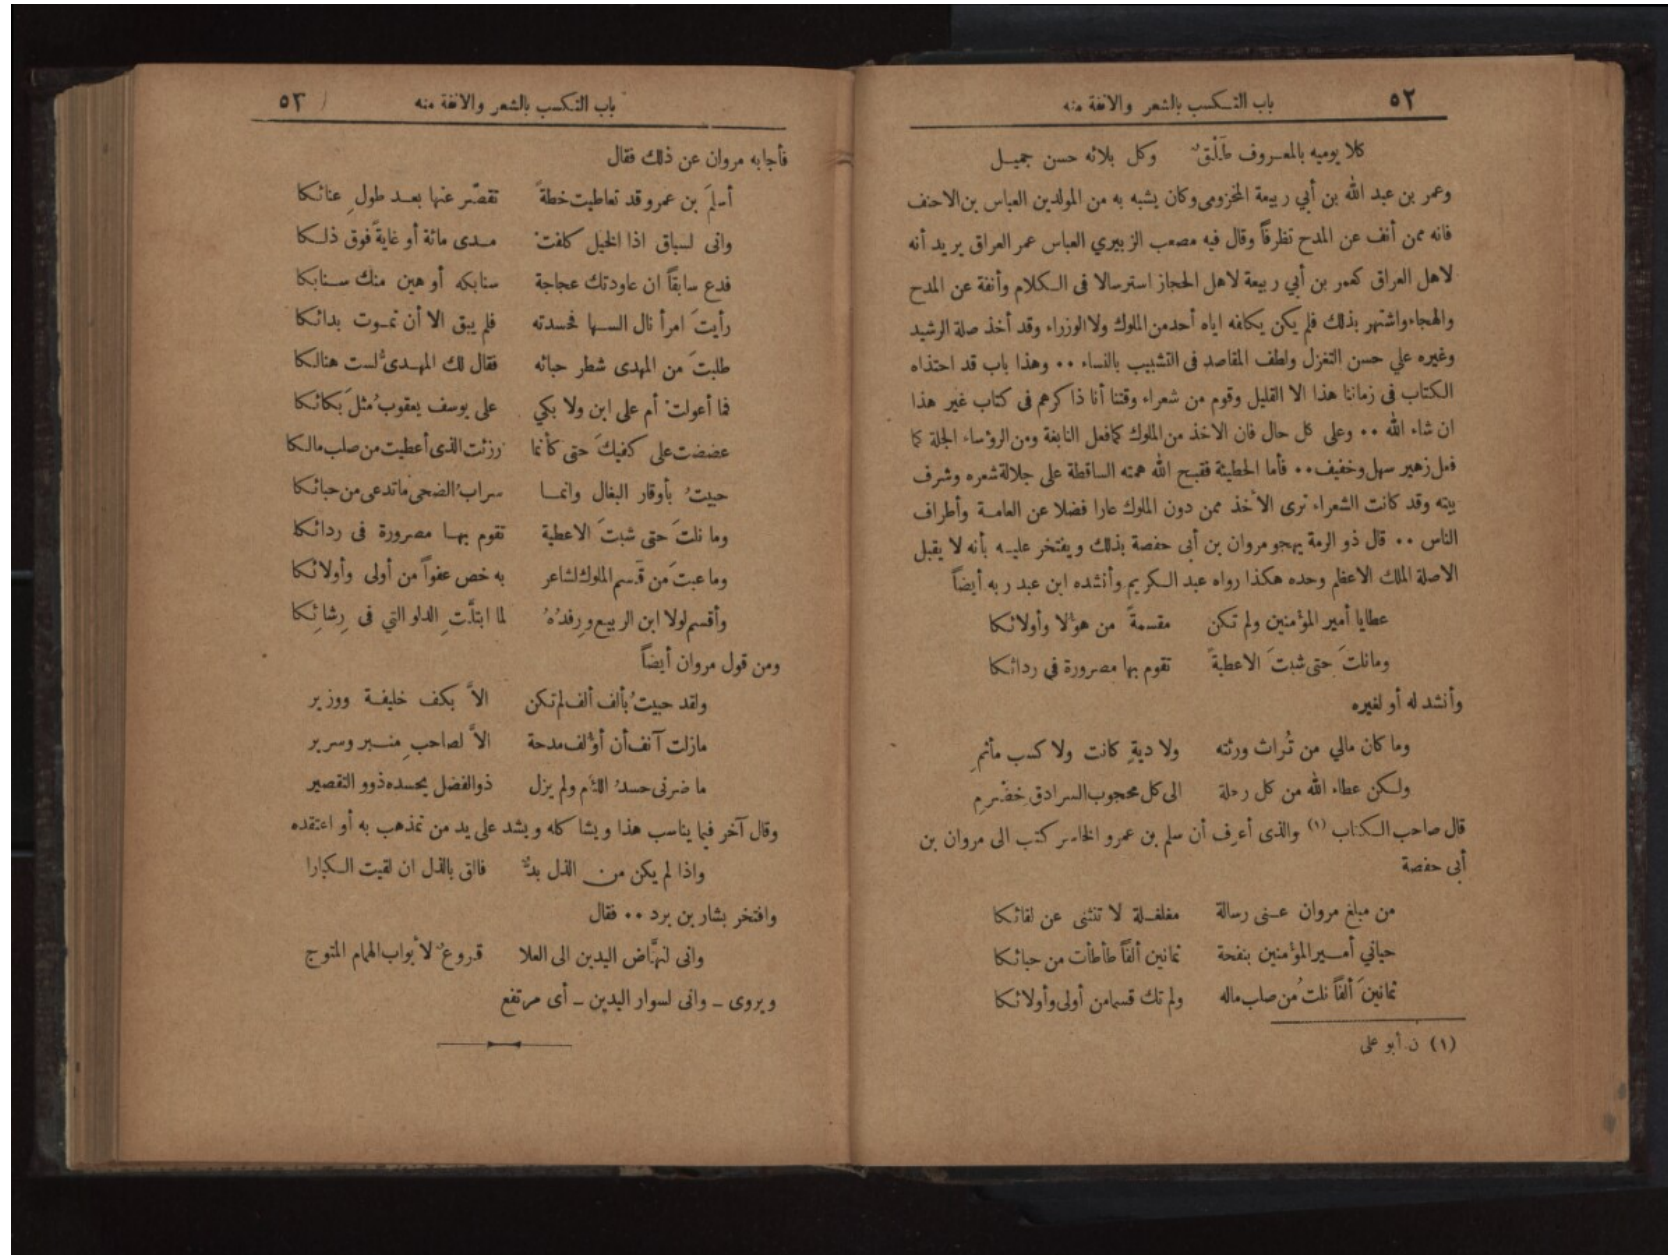 ٥٢ باب التكسب بالشعر والانفة منه
كلا يوميه بالمعروف طَلْقٌ وكل بلائه حسن جميل
وعمر بن عبد الله بن أبي ربيعة المخزومى وكان يشبه به من المولدين العباس بن الاحنف
فانه ممن أنف عن المدح تظرفاً وقال فيه مصعب الزبيري العباس عمر العراق يريد أنه
لاهل العراق كعمر بن أبي ربيعة لاهل الحجاز استرسالا فى الكلام وأنفة عن المدح
والهجاء واشتهر بذلك فلم يكن يكلفه اياه أحد من الملوك ولا الوزراء وقد أخذ صلة الرشيد
وغيره علي حسن التغزل ولطف المقاصد فى التشبيب بالنساء ٠٠ وهذا باب قد احتذاه
الكتاب فى زماننا هذا الا القليل وقوم من شعراء وقتنا أنا ذاكرهم فى كتاب غير هذا
ان شاء الله ٠٠ وعلى كل حال فان الاخذ من الملوك كما فعل النابغة ومن الرؤساء الجلة كما
فعل زهير سهل وخفيف ٠٠ فأما الحطيئة فقبح الله همته الساقطة على جلالة شعره وشرف
بيته وقد كانت الشعراء ترى الأخذ ممن دون الملوك عارا فضلا عن العامة وأطراف
الناس ٠٠ قال ذو الرمة يهجو مروان بن أبى حفصة بذلك ويفتخر عليه بأنه لا يقبل
الاصلة الملك الاعظم وحده هكذا رواه عبد الكريم وأنشده ابن عبد ربه أيضاً
عطايا أمير المؤمنين ولم تكن مقسمةً من هؤلا وأولائكا
ومانلتَ حتى شبتَ الاعطيةً تقوم بها مصرورة في ردائكا
وأنشد له أو لغيره
وما كان مالي من تُراث ورثته ولا ديةٍ كانت ولا كسب مأثمِ
ولكن عطاء الله من كل رحلة الى كل محجوب السرادق خضْرمِ
قال صاحب الكتاب (١) والذى أعرف أن سلم بن عمرو الخاسر كتب الى مروان بن
أبى حفصة
من مبلغ مروان عنى رسالة مغلغلة لا تنثنى عن لقائكا
حباني أمير المؤمنين بنفحة ثمانين ألفاً طأطأت من حبائكا
ثمانينَ ألفاً نلتُ من صلب ماله ولم تك قسما من أولى وأولائكا
(١) ن. أبو على
باب التكسب بالشعر والانفة منه ٥٣
فأجابه مروان عن ذلك فقال
أسلمَ بن عمرو قد تعاطيت خطةً تقصّر عنها بعد طول عنائكا
وانى لسباق اذا الخيل كلفتْ مدى مائة أو غايةً فوق ذلكا
فدع سابقاً ان عاودتك عجاجة سنابكه أوهين منك سنابكا
رأيتَ امرأ نال السها فحسدته فلم يبق الا أن تموت بدائكا
طلبتَ من المهدى شطر حبائه فقال لك المهدىُّ لست هنالكا
فما أعولتْ أم على ابن ولا بكي على يوسف يعقوبُ مثلَ بكائكا
عضضت على كفيكَ حتى كأنما رزئت الذى أعطيت من صلب مالكا
حبيتُ بأوقار البغال وانما سرابُ الضحى ماتدعى من حبائكا
وما نلتَ حتى شبتَ الاعطية تقوم بها مصرورة فى ردائكا
وما عبتَ من قَسم الملوك لشاعر به خص عفواً من أولى وأولائكا
وأقسم لولا ابن الربيع ورفدُهُ لما ابتلَّت الدلو التي فى رِشائِكا
ومن قول مروان أيضاً
ولقد حبيتُ بألف ألف لم تكن الاَّ بكف خليفة ووزير
مازلت آنف أن أؤلف مدحة الاَّ لصاحب منبر وسرير
ما ضرنى حسدُ اللئام ولم يزل ذو الفضل يحسده ذوو التقصير
وقال آخر فيما يناسب هذا ويشاكله ويشد على يد من تمذهب به أو اعتقده
واذا لم يكن من الذل بدٌّ فالق بالذل ان لقيت الكبارا
وافتخر بشار بن برد ٠٠ فقال
وانى لنهَّاض اليدين الى العلا قروعٌ لأبواب الهمام المتوج
ويروى ـ وانى لسوار اليدين ـ أى مرتفع